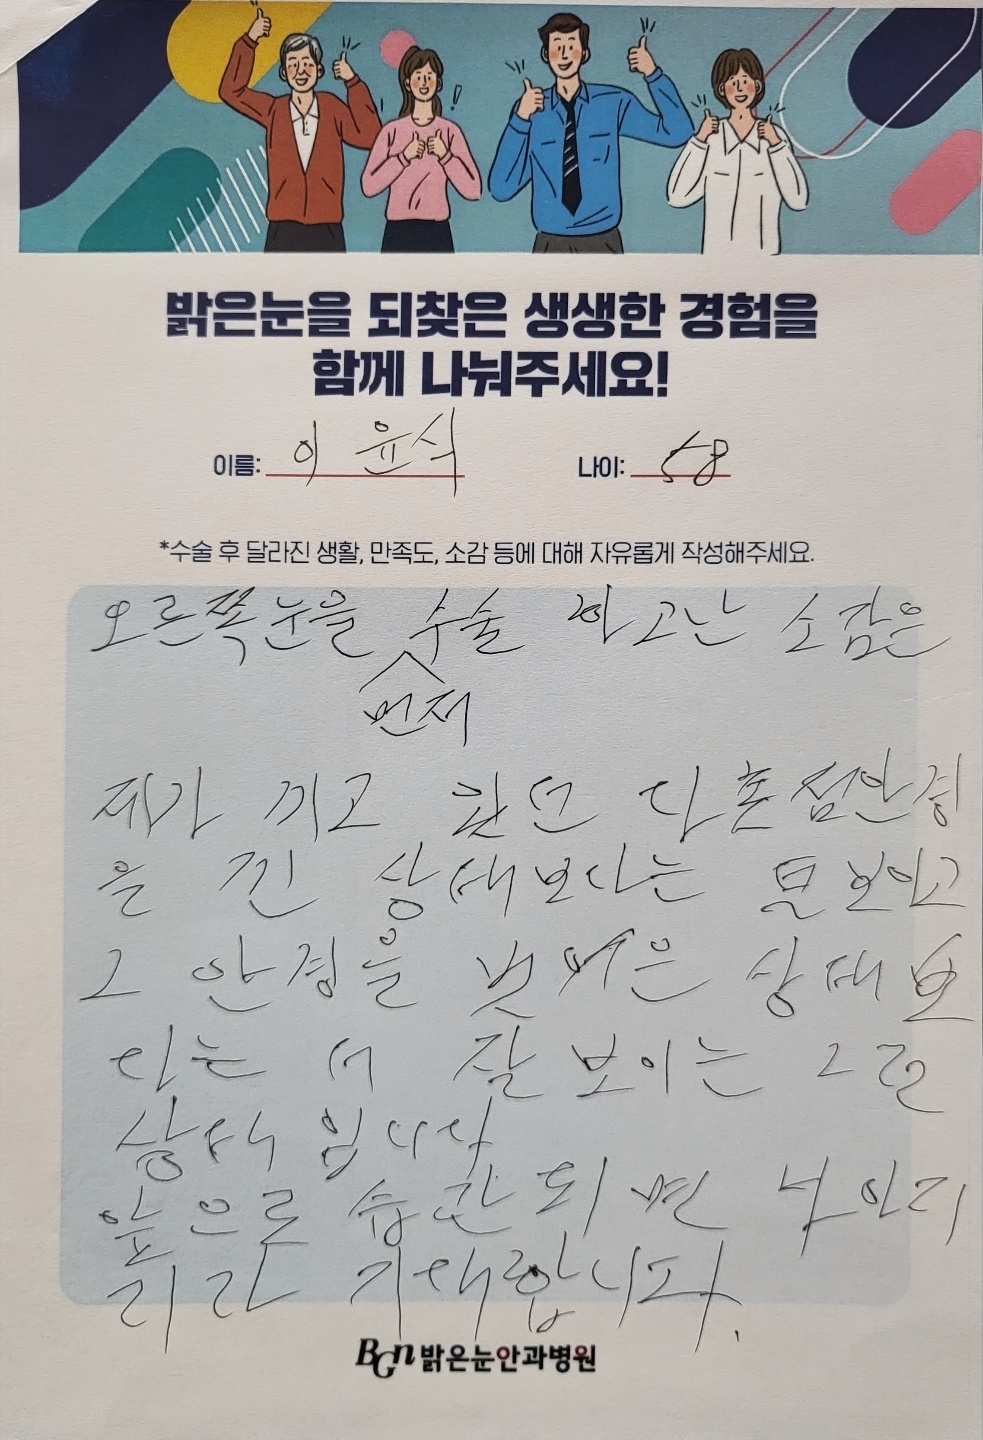 밝은눈을 되찾은 생생한 경험을
함께 나눠주세요!
이름: 이윤식 나이: 58
*수술 후 달라진 생활, 만족도, 소감 등에 대해 자유롭게 작성해주세요.
오른쪽눈을 수술 하고난 소감은
먼저
제가 끼고 있던 다촛점안경
을 낀 상태보다는 못 보이고
그 안경을 벗은 상태보
다는 더 잘 보이는 그런
상태 입니다
앞으로 습관되면 나아지
리라 기대합니다.
BGn 밝은눈안과병원